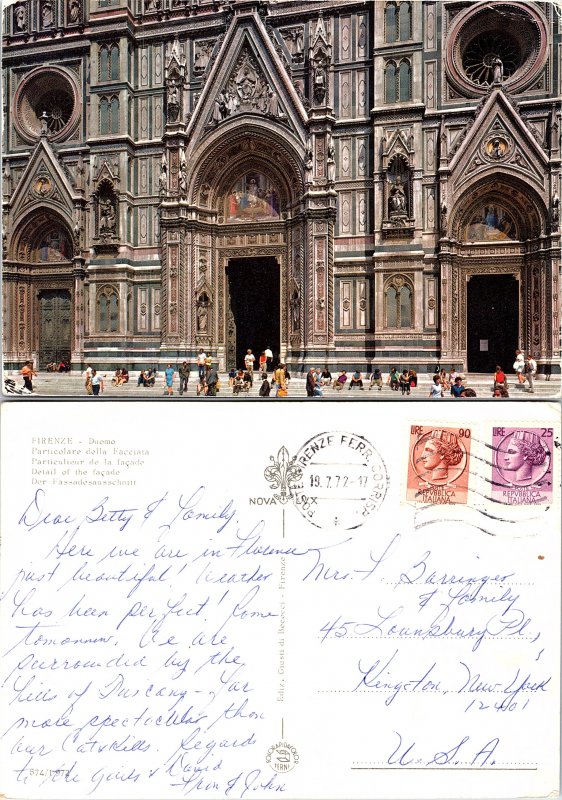 FIRENZE - Duomo
Particolare della Facciata
Particulier de la façade
Detail of the façade
Der Fassadesausschnitt
NOVA LUX
FIRENZE FERR. CORRISP.
19.7.72-17
LIRE 90
POSTE
REPVBBLICA
ITALIANA
LIRE 25
POSTE
REPVBBLICA
ITALIANA
Dear Betty & Family,
Here we are in Florence
just beautiful! Weather
has been perfect! Rome
tomorrow. We are
surrounded by the
hills of Tuscany - far
more spectacular than
our Catskills. Regards
to the girls & David
& John
574/1974
Ediz. Giusti di Becocci - Firenze
TERNI
Mrs. F. Barringer
& Family
45 Lounsbury Pl,
Kingston, New York
12401
U.S.A.